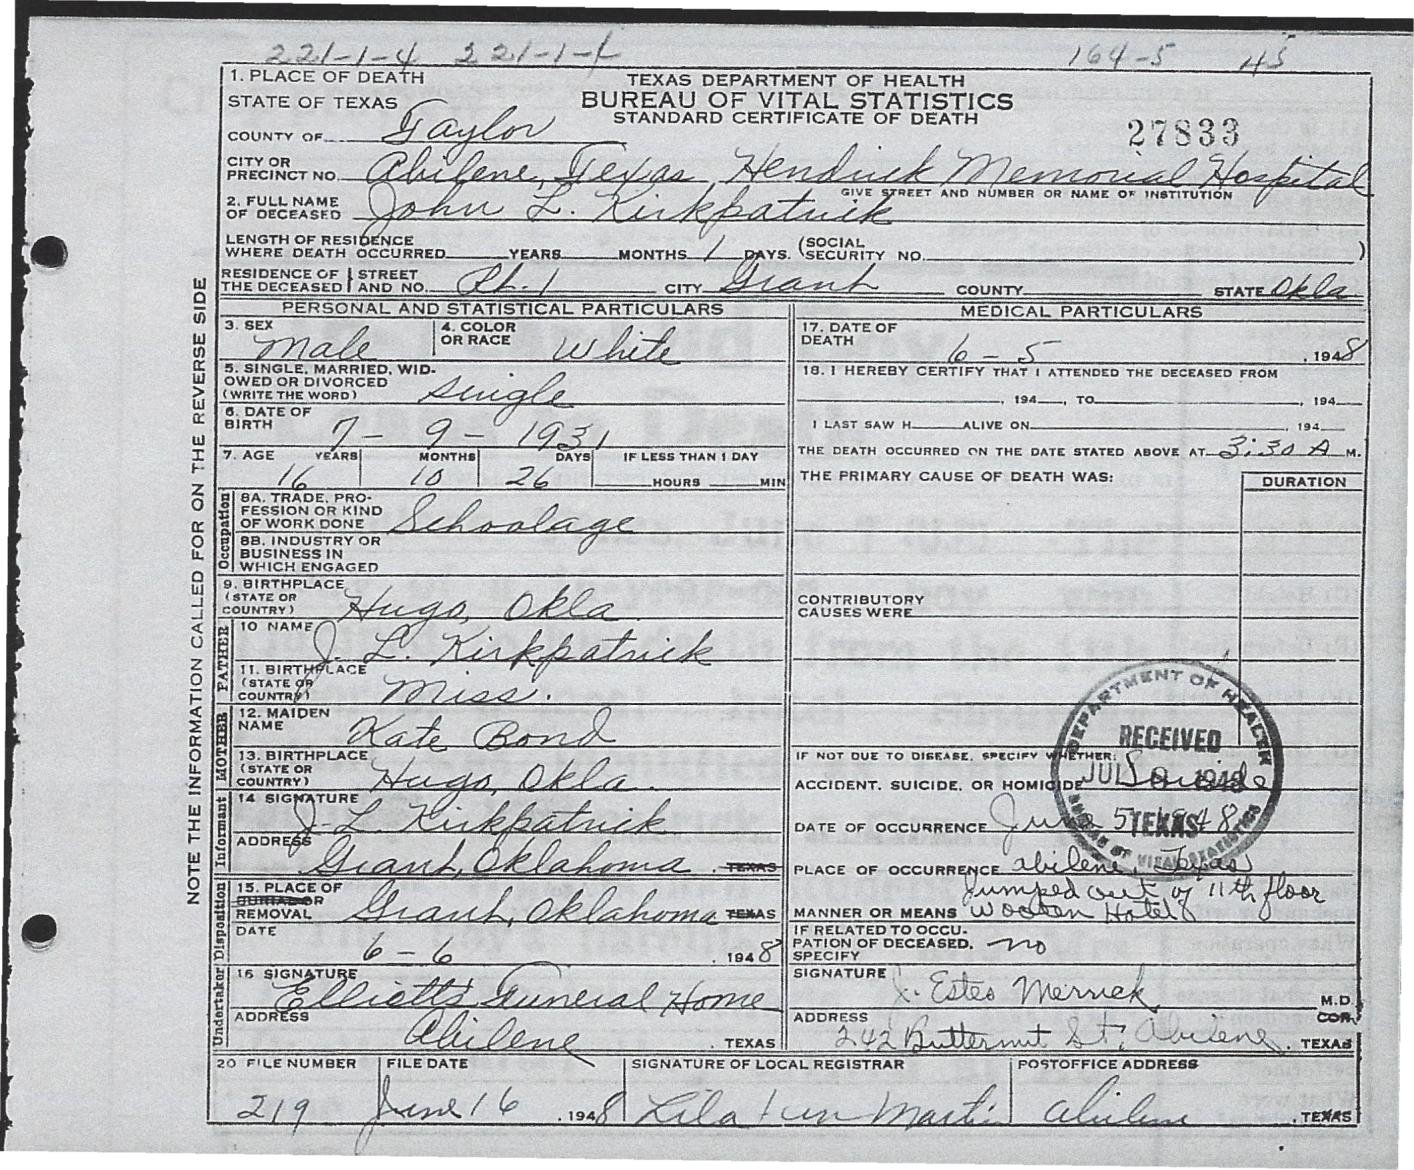 221-1-4 221-1-4 164-5 45
1. PLACE OF DEATH
STATE OF TEXAS
TEXAS DEPARTMENT OF HEALTH
BUREAU OF VITAL STATISTICS
STANDARD CERTIFICATE OF DEATH
27833
COUNTY OF Taylor
CITY OR PRECINCT NO. Abilene, Texas Hendrick Memorial Hospital
GIVE STREET AND NUMBER OR NAME OF INSTITUTION
2. FULL NAME OF DECEASED John L. Kirkpatrick
LENGTH OF RESIDENCE WHERE DEATH OCCURRED YEARS MONTHS 1 DAYS. (SOCIAL SECURITY NO. )
RESIDENCE OF THE DECEASED STREET AND NO. Rt. 1 CITY Grant COUNTY STATE Okla
PERSONAL AND STATISTICAL PARTICULARS
3. SEX Male
4. COLOR OR RACE White
5. SINGLE, MARRIED, WIDOWED OR DIVORCED (WRITE THE WORD) single
6. DATE OF BIRTH 7-9-1931
7. AGE YEARS MONTHS DAYS IF LESS THAN 1 DAY
16 10 26 HOURS MIN
Occupation
8A. TRADE, PROFESSION OR KIND OF WORK DONE Schoolage
8B. INDUSTRY OR BUSINESS IN WHICH ENGAGED
9. BIRTHPLACE (STATE OR COUNTRY) Hugo, Okla.
FATHER
10 NAME J. L. Kirkpatrick
11. BIRTHPLACE (STATE OR COUNTRY) Miss.
MOTHER
12. MAIDEN NAME Kate Bond
13. BIRTHPLACE (STATE OR COUNTRY) Hugo, Okla.
Informant
14 SIGNATURE J. L. Kirkpatrick
ADDRESS Grant, Oklahoma. TEXAS
Disposition
15. PLACE OF BURIAL OR REMOVAL Grant, Oklahoma TEXAS
DATE 6-6 . 1948
Undertaker
16 SIGNATURE Elliott's Funeral Home
ADDRESS Abilene . TEXAS
MEDICAL PARTICULARS
17. DATE OF DEATH 6-5 , 1948
18. I HEREBY CERTIFY THAT I ATTENDED THE DECEASED FROM
, 194 , TO , 194
I LAST SAW H ALIVE ON 194
THE DEATH OCCURRED ON THE DATE STATED ABOVE AT 3:30 A M.
THE PRIMARY CAUSE OF DEATH WAS: DURATION
CONTRIBUTORY CAUSES WERE
IF NOT DUE TO DISEASE, SPECIFY WHETHER:
ACCIDENT, SUICIDE, OR HOMICIDE Suicide
DATE OF OCCURRENCE June 5 1948
PLACE OF OCCURRENCE Abilene, Texas
MANNER OR MEANS Jumped out of 11th floor Wooten Hotel
IF RELATED TO OCCUPATION OF DECEASED, SPECIFY no
SIGNATURE J. Estes Merrick M.D. COR.
ADDRESS 242 Butternut St, Abilene. TEXAS
DEPARTMENT OF HEALTH
RECEIVED
JUL 1948
TEXAS
BUREAU OF VITAL STATISTICS
20 FILE NUMBER FILE DATE SIGNATURE OF LOCAL REGISTRAR POSTOFFICE ADDRESS
219 June 16 . 1948 Lila Martin Abilene . TEXAS
NOTE THE INFORMATION CALLED FOR ON THE REVERSE SIDE